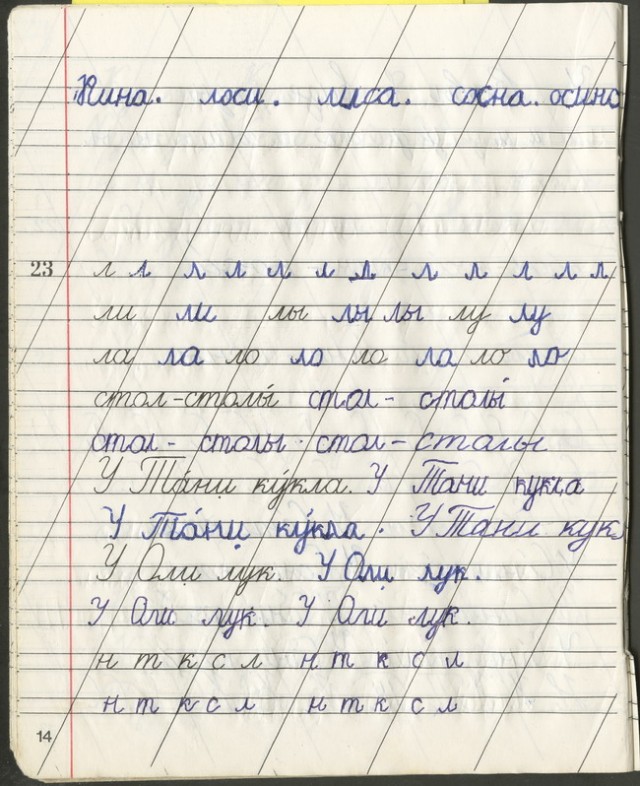 Нина. лоси. лиса. сосна. осина
23 л л л л л л л л л л л л
ли ли лы лы лы лу лу
ла ла ло ло ло ла ло ло
стол-столы́ стол- столы́
стол- столы. стол-столы
У Та́ни ку́кла. У Тани кукла
У Та́ни ку́кла. У Тани кук
У Оли лук. У Оли лук.
У Оли лук. У Оли лук.
н т к с л н т к с л
н т к с л н т к с л
14